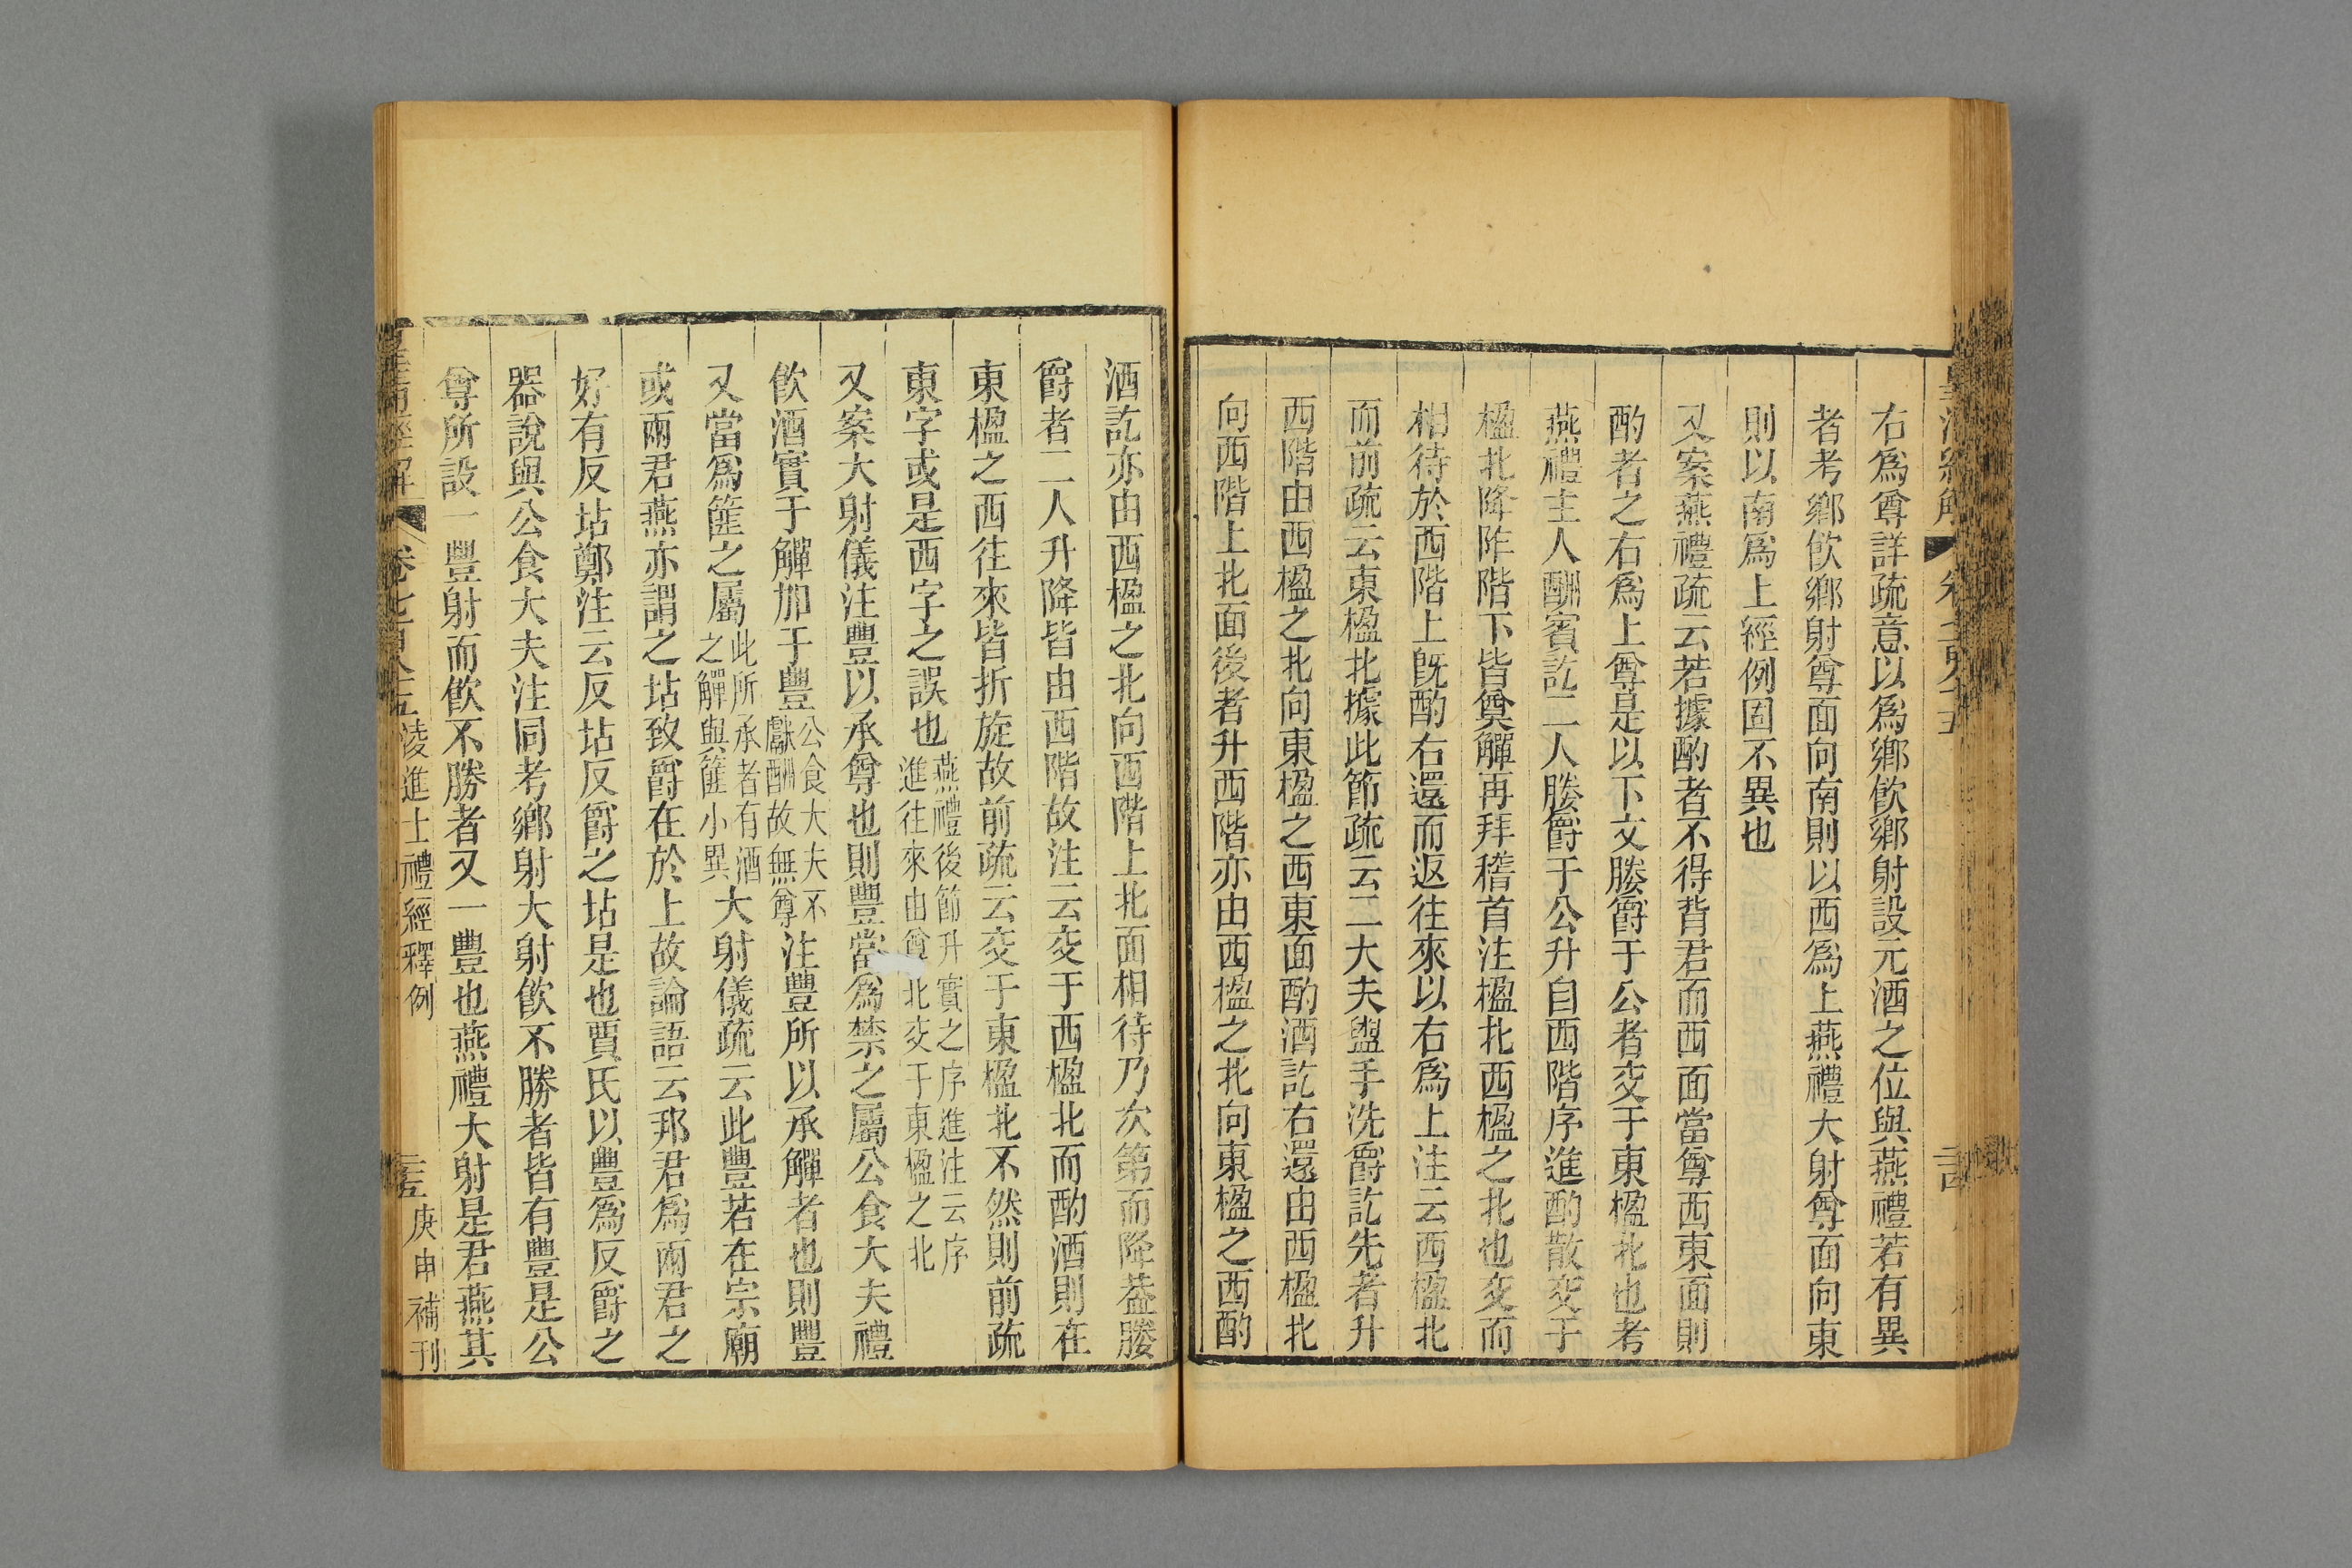 右爲尊詳疏意以爲鄉飮鄉射設元酒之位與燕禮若有異
者考鄉飮鄉射尊面向南則以西爲上燕禮大射尊面向東
則以南爲上經例固不異也
又案燕禮疏云若據酌者不得背君而西面當尊西東面則
酌者之右爲上尊是以下文媵爵于公者交于東楹北也考
燕禮主人酬賓訖二人媵爵于公升自西階序進酌散交于
楹北降阼階下皆奠觶再拜稽首注楹北西楹之北也交而
相待於西階上旣酌右還而返往來以右爲上注云西楹北
而前疏云東楹北據此節疏云二大夫盥手洗爵訖先者升
西階由西楹之北向東楹之西東面酌酒訖右還由西楹北
向西階上北面後者升西階亦由西楹之北向東楹之西酌
酒訖亦由西楹之北向西階上北面相待乃次第而降葢媵
爵者二人升降皆由西階故注云交于西楹北而酌酒則在
東楹之西往來皆折旋故前疏云交于東楹北不然則前疏
東字或是西字之誤也燕禮後節升實之序進注云序進往來由尊北交于東楹之北
又案大射儀注豐以承尊也則豐當爲禁之屬公食大夫禮
飮酒實于觶加于豐公食大夫不獻酬故無尊注豐所以承觶者也則豐
又當爲篚之屬此所承者有酒之觶與篚小異大射儀疏云此豐若在宗廟
或兩君燕亦謂之坫致爵在於上故論語云邦君爲兩君之
好有反坫鄭注云反坫反爵之坫是也賈氏以豐爲反爵之
器說與公食大夫注同考鄉射大射飮不勝者皆有豐是公
尊所設一豐射而飮不勝者又一豐也燕禮大射是君燕其
皇淸經解 卷七百八十五 淩進士禮經釋例 三五 庚申補刊